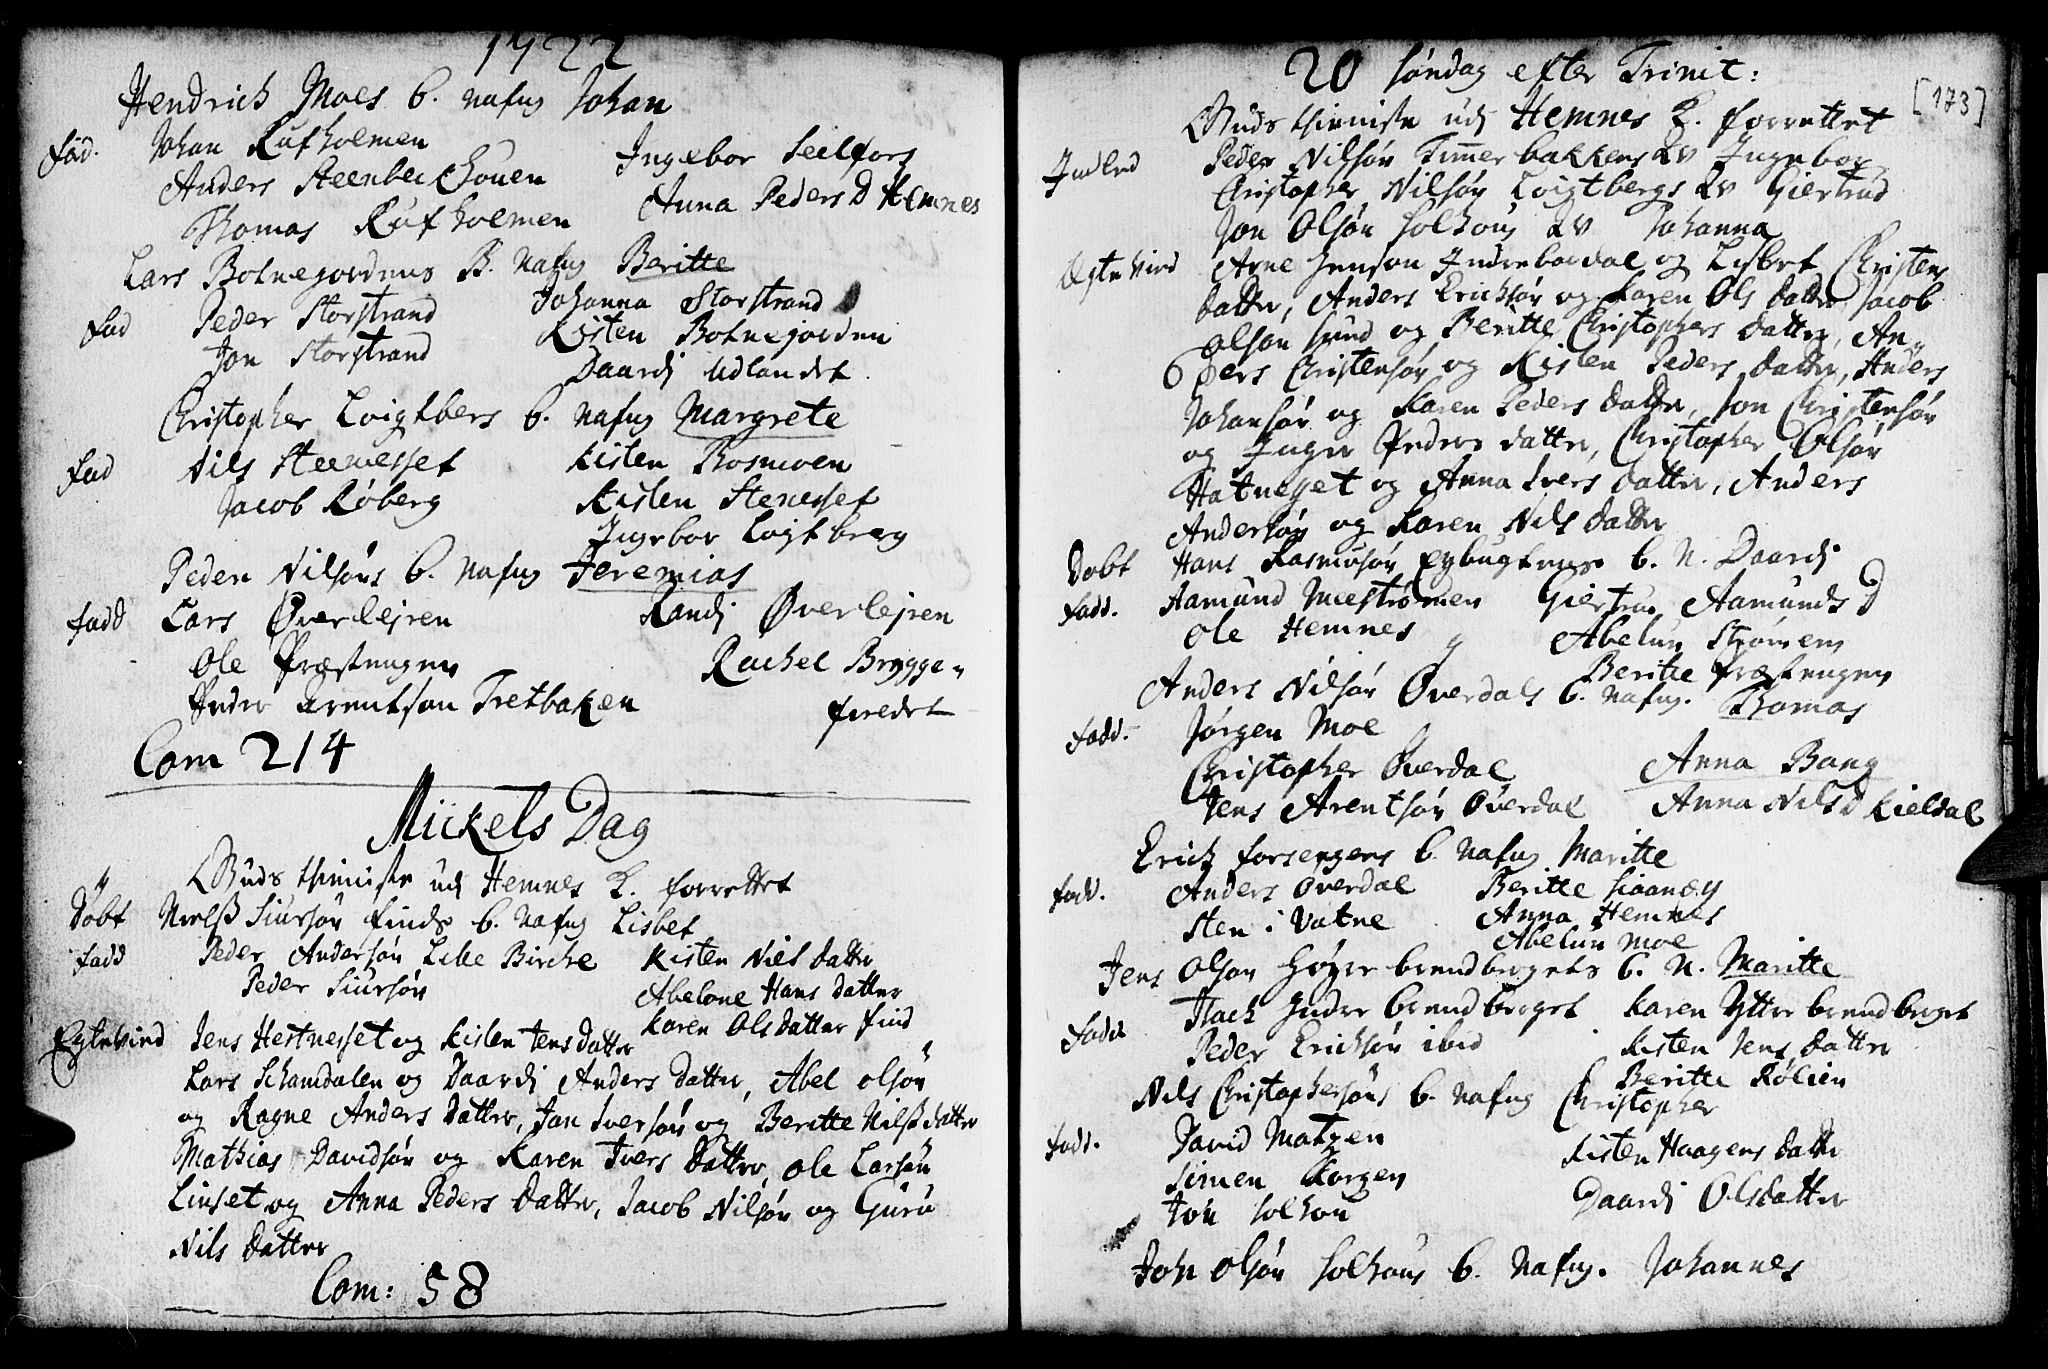 1722
Hendrich Moes b. nafng Johan
Fad. Johan Rufholmen
Anders Steenbechouen Ingebor Seilfors
Thomas Rufholmen Anna Peders D Hemnes
Lars Botnegordens B. nafng Beritte
Fad Peder Storstrand Johanna Storstrand
Jon Storstrand Kisten Botnegorden
Daardi Udlandet
Christopher Loigtbers b. nafng Margrete
Fad Nils Steenesset Kisten Rosmoen
Jacob Røberg Kisten Stenesset
Ingebor Loigtberg
Peder Nilsøns b. nafng Jeremias
Fadd Lars Øverlejren Randj Øverlejren
Ole Præstengen Rachel Brygge-
Peder Arentson Tretbaken firedet
Com 214
Mickels Dag
Guds thieniste udj Hemnes K. forrettet
Døbt Nielss Siursøn Finds b. nafng Lisbet
Fadd Peder Andersøn Lille Birche Kisten Niels datter
Peder Siursøn Abelone Hans datter
Karen Ols datter Find
Egtevied Jens Hestnesset og Kisten Jens datter
Lars Schamdalen og Daardj Anders datter, Abel olsøn
og Ragne Anders datter, Jon Iversøn og Beritte Nilss datter
Mathias Davidsøn og Karen Ivers datter, Ole Larsøn
Linset og Anna Peders datter, Jacob Nilsøn og Guru
Nils datter
Com: 58
20 søndag efter Trinit:
[173]
Guds thieniste udj Hemnes K. forrettet
Indled Peder Nilsøn Timerbakkens Kv Ingebor
Christopher Nilsøn Loigtbergs Kv Giertrud
Jon Olsøn Solhous Kv Johanna
Egtevied Arne Jenson Indreboedal og Lisbet Christens
datter, Anders Ericksøn og Karen Ols datter Jacob
Olson Sund og Beritte Christophers datter, An-
6 ders Christensøn og Kisten Peders datter, Anders
Johansøn og Karen Peders datter, Jon Christensøn
og Inger Peders datter, Christopher Olsøn
Hatnesset og Anna Ivers datter, Anders
Andersøn og Karen Nils datter
Døbt Hans Rasmusøn b. N. Daardj
Fadd. Aamund Moestrømen Giertrud Aamunds D
Ole Hemnes Abelun Strømen
Beritte Præstengen
Anders Nilsøn Overdals b. nafng. Thomas
Fadd. Jørgen Moe
Christopher Overdal Anna Bang
Jens Arentsøn Overdal Anna Nils D Kieldal
Erich Forsengens b. nafng Maritte
Fadd. Anders Overdal Beritte Siaanæs
Sten i Vatne Anna Hemnes
Abelun Moe
Jens Olson Høyer brendbergets b. N. Maritte
Fadd Isach Indre brendberget Karen Ytter brendberget
Peder Erichsøn ibid Kisten Jens datter
Beritte Rølien
Nils Christophersøns b. nafng Christopher
Fadd. David Matzen Kisten Haagens datter
Simen Korgen Daardj Olsdatter
Jon Solhou
John Olsøn Solhous b. nafng. Johannes